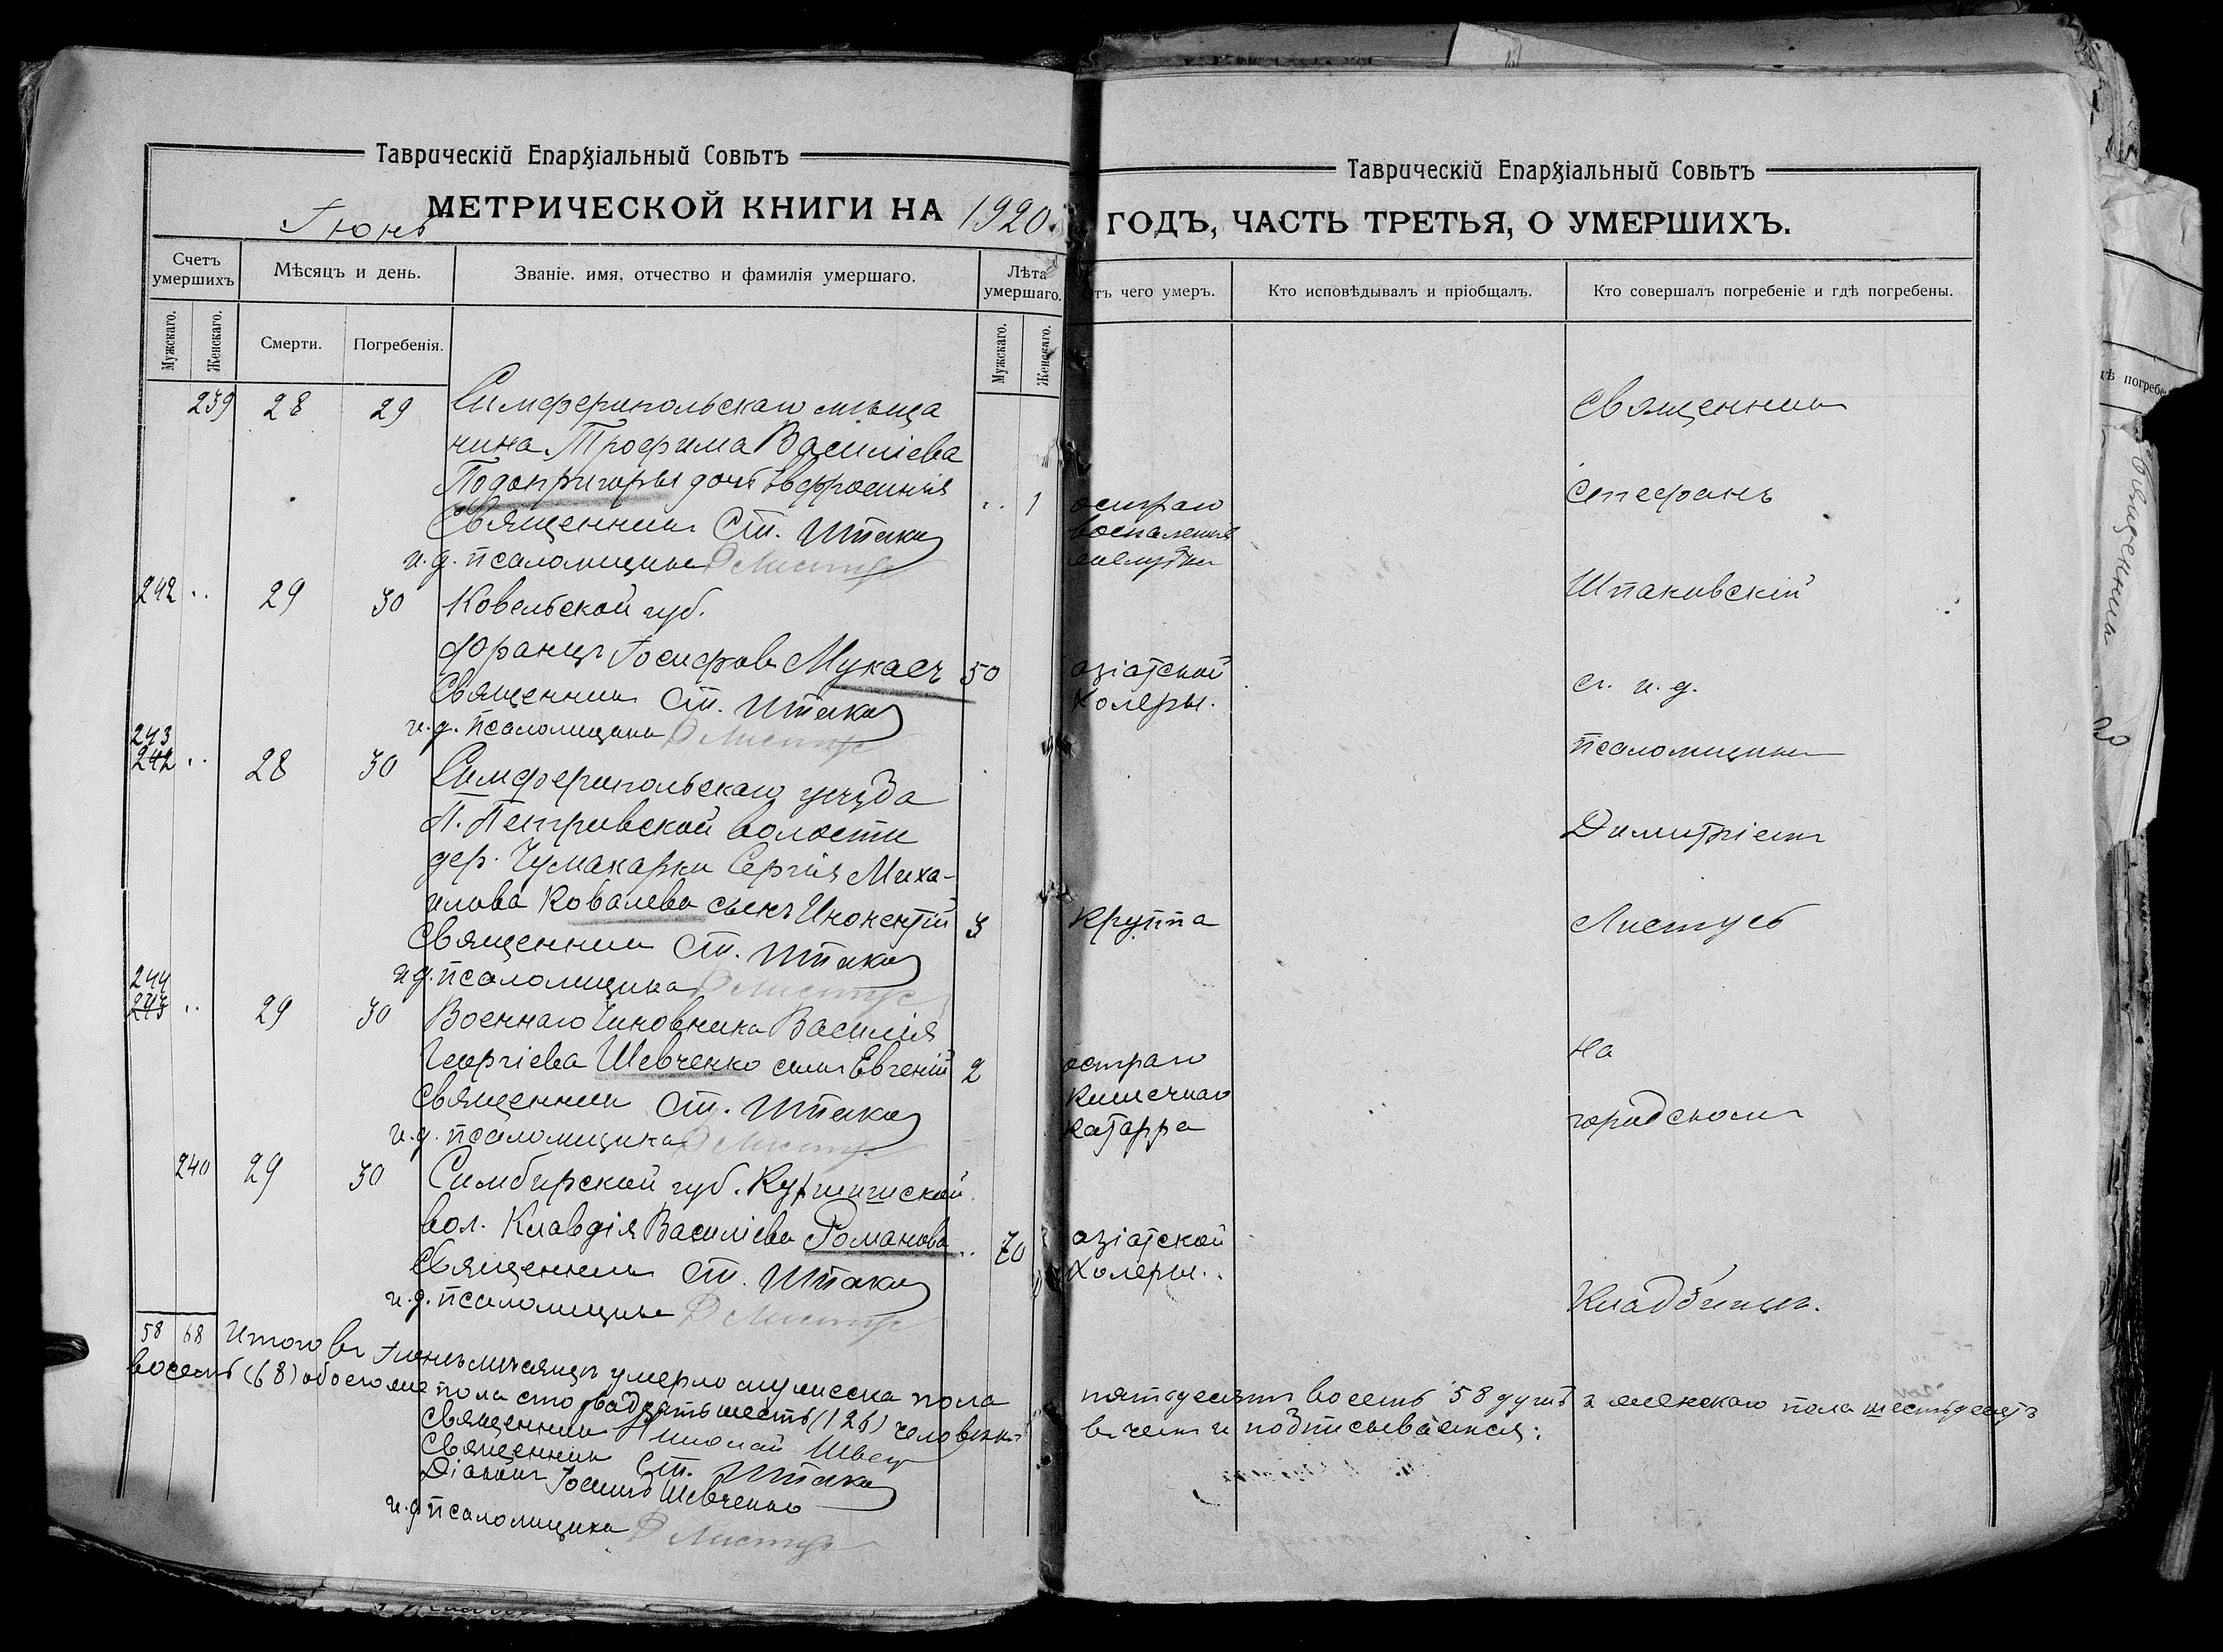 Таврическій Епархіальный Совѣтъ
МЕТРИЧЕСКОЙ КНИГИ НА 1920
Іюнь
Счетъ умершихъ
Мѣсяцъ и день.
Званіе. имя, отчество и фамилія умершаго.
Лѣта умершаго.
Мужскаго.
Женскаго.
Смерти.
Погребенія.
Мужскаго.
Женскаго.
239 28 29 Симферопольскаго мѣща
нина Трофима Василіева
Подопригоры дочь Евфросинія .. 1
Священникъ Ст. Шпаков
и.д. псаломщика Д Листус
242 .. 29 30 Ковельской губ.
Францъ Іосифовъ Мукаеч 50
Священникъ Ст. Шпаков
и.д. псаломщика Д Листус
243
242 .. 28 30 Симферопольскаго уѣзда
П. Петровской волости
дер. Чумакарки Сергія Миха-
илова Ковалева сынъ Инокентій 3
Священникъ Ст. Шпаков
и.д. псаломщика Д Листус
244
243 .. 29 30 Военнаго Чиновника Василія
Георгіева Шевченко сынъ Евгеній 2
Священникъ Ст. Шпаков
и.д. псаломщика Д Листус
240 29 30 Симбирской губ. Курмышской
вол. Клавдія Василіева Романова .. 70
Священникъ Ст. Шпаков
и.д. псаломщика Д Листус
58 68 Итого въ Іюнѣ мѣсяцѣ умерло мужеска пола
восемь (68) обоего же пола сто двадцать шесть (126) человѣкъ
Священникъ Николай Швец
Священникъ Ст. Шпаков
Діаконъ Іосифъ Шевченко
и.д псаломщика Д Листус
Таврическій Епархіальный Совѣтъ
ГОДЪ, ЧАСТЬ ТРЕТЬЯ, О УМЕРШИХЪ.
Отъ чего умеръ.
Кто исповѣдывалъ и пріобщалъ.
Кто совершалъ погребеніе и гдѣ погребены.
Священникъ
остраго
воспаленія
желудка
Стефанъ
Шпаковскій
азіатской
холеры.
съ и.д.
псаломщика
Димитріемъ
круппа
Листусъ
остраго
кишечнаго
катарра
на
городскомъ
азіатской
холеры.
Кладбищѣ.
пятьдесятъ восемь 58 душъ а женскаго пола шестьдесятъ
въ чемъ и подписываемся:
гдѣ погребе
Священника